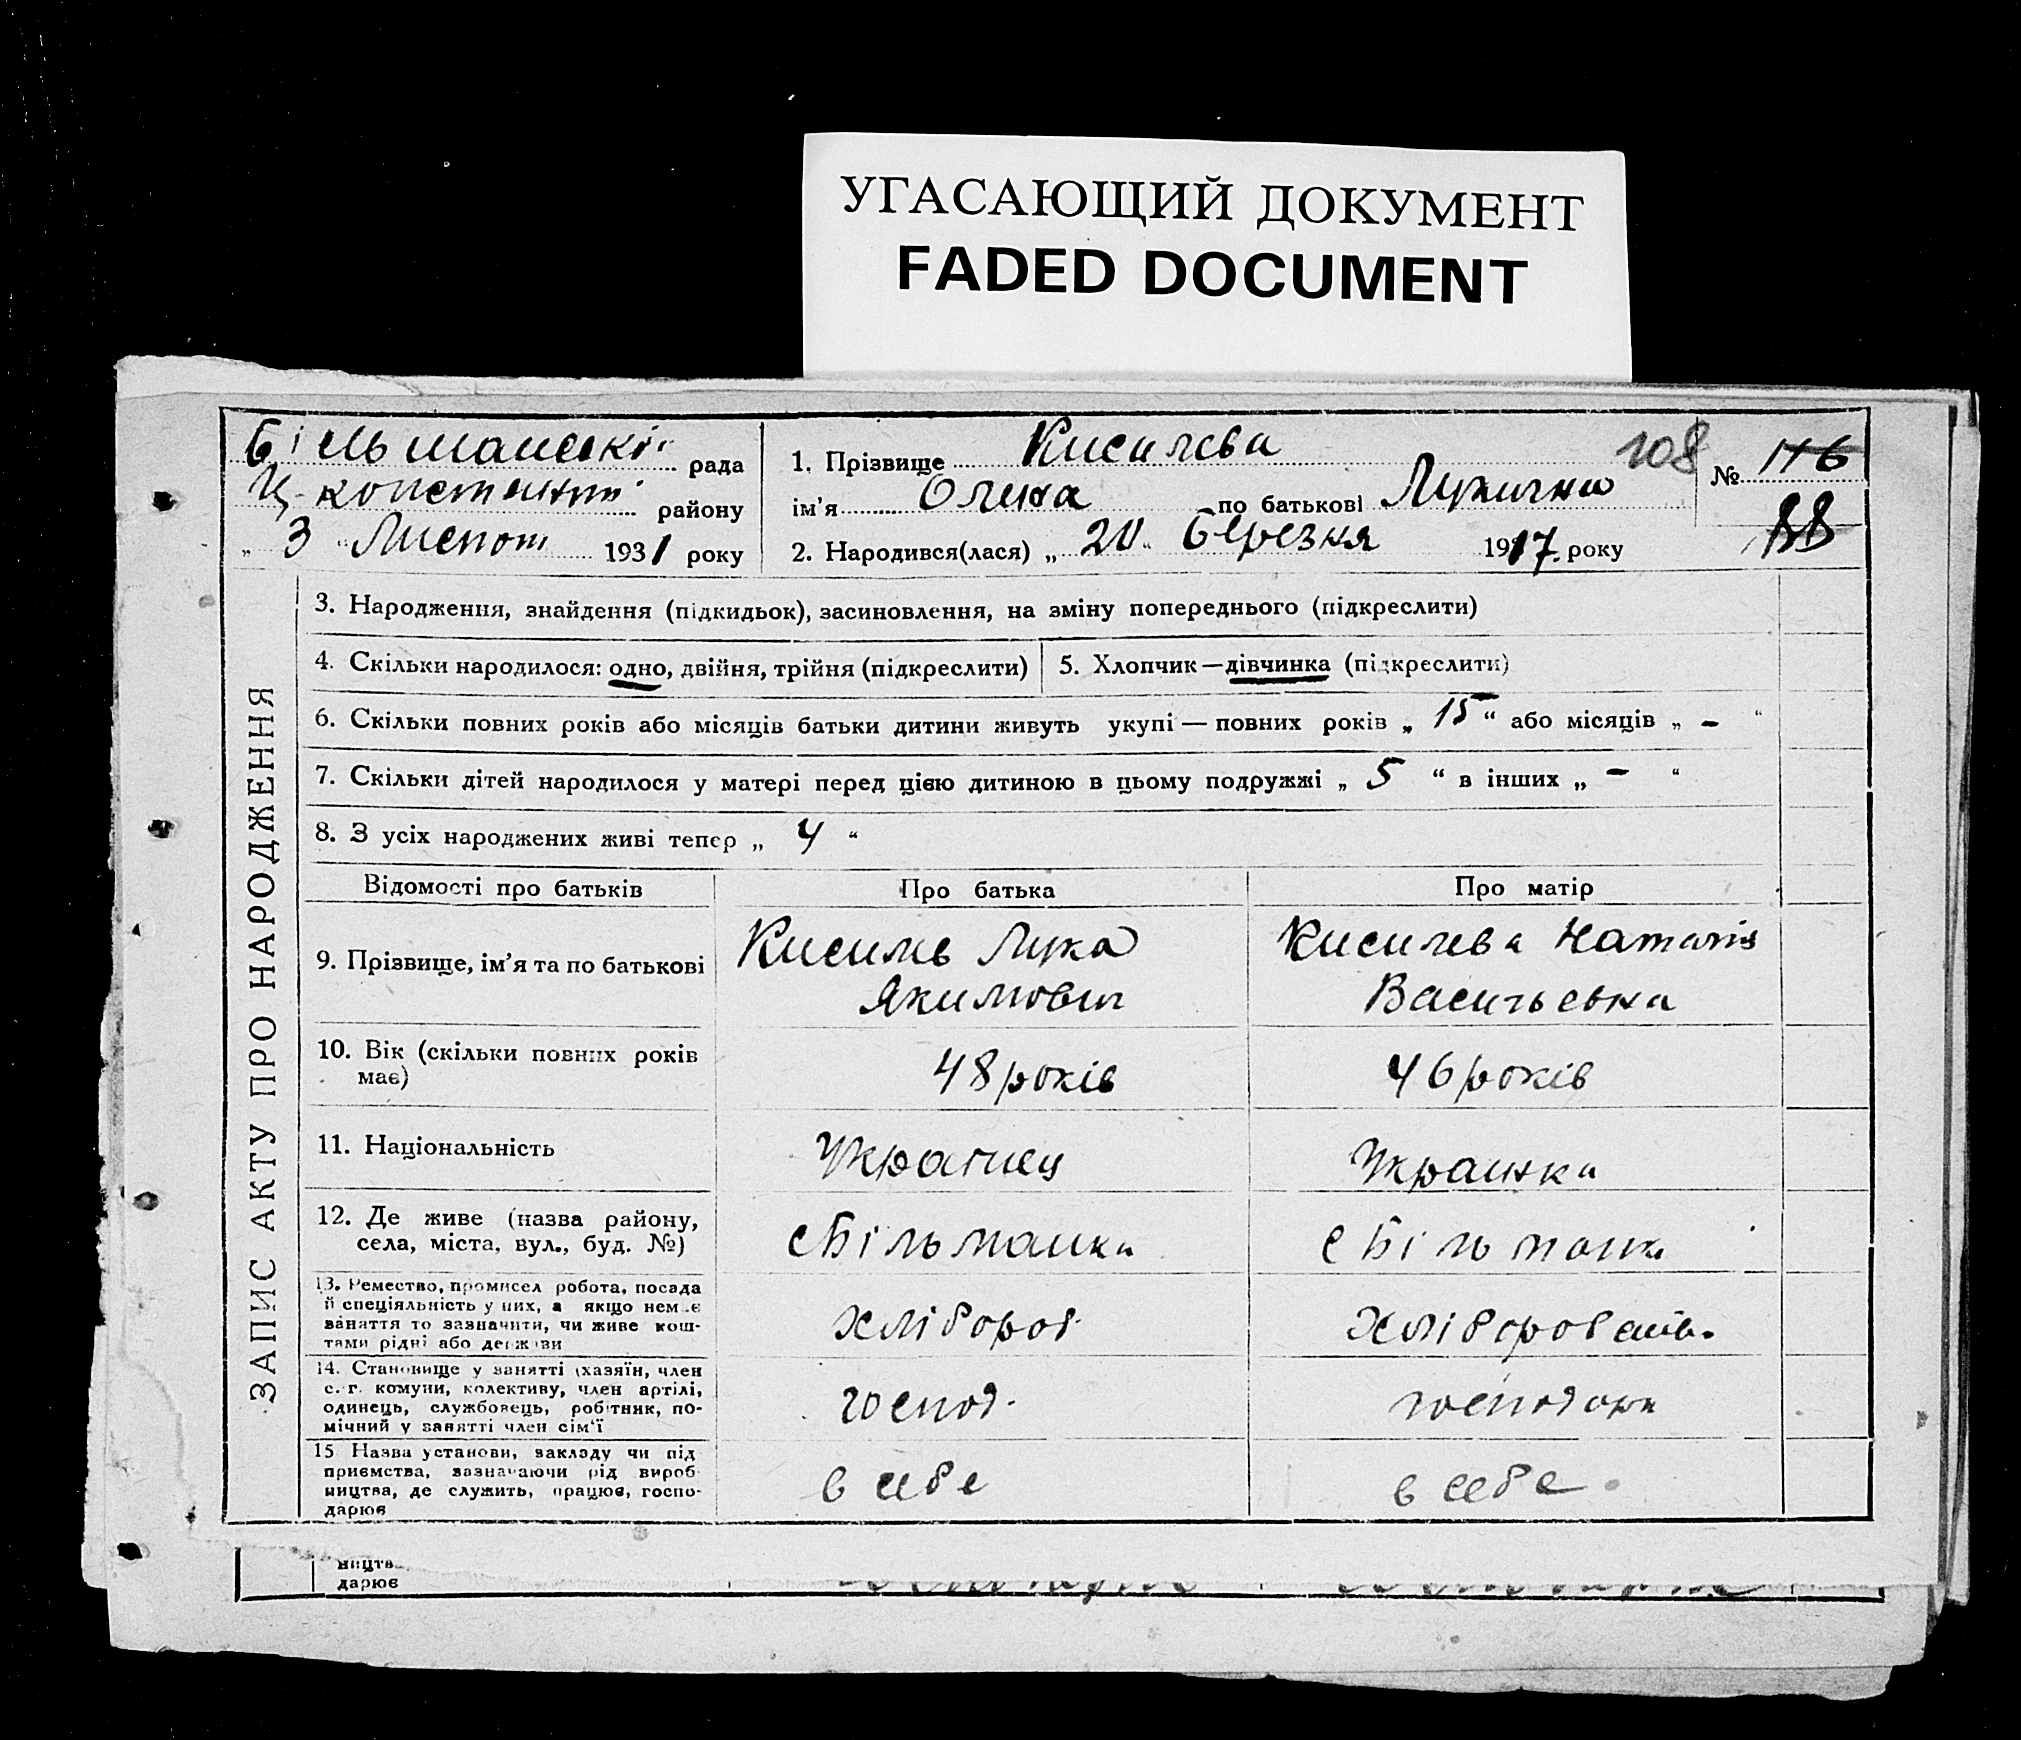 УГАСАЮЩИЙ ДОКУМЕНТ
FADED DOCUMENT
Більманскі рада
Ц-констант району
„ 3 “ Листоп 1931 року
1. Прізвище Кисилева 108
ім'я Олена по батькові Лукична
2. Народився(лася) „ 20 “ Березня 1917. року
№ 116
88
ЗАПИС АКТУ ПРО НАРОДЖЕННЯ
3. Народження, знайдення (підкидьок), засиновлення, на зміну попереднього (підкреслити)
4. Скільки народилося: одно, двійня, трійня (підкреслити)
5. Хлопчик — дівчинка (підкреслити)
6. Скільки повних років або місяців батьки дитини живуть укупі — повних років „ 15 “ або місяців „ – “
7. Скільки дітей народилося у матері перед цією дитиною в цьому подружжі „ 5 “ в інших „ – “
8. З усіх народжених живі тепер „ 4 “
Відомості про батьків
Про батька
Про матір
9. Прізвище, ім'я та по батькові
Кисиль Лука
Якимович
Кисилева Наталія
Васильевна
10. Вік (скільки повних років
має)
48 років
46 років
11. Національність
Украінец
Украинка
12. Де живе (назва району,
села, міста, вул., буд. №)
с Більманка
с Більманка
13. Ремество, промисел робота, посада
й спеціяльність у них, а якщо немає
заняття то зазначити, чи живе кош-
тами рідні або держави
хлібороб
14. Становище у занятті (хазяїн, член
с.-г. комуни, колективу, член артілі,
одинець, службовець, робітник, по-
мічний у занятті член сім'ї
господ.
господарк
15 Назва установи, закладу чи під
приємства, зазначаючи рід вироб-
ництва, де служить, працює, госпо-
дарює
в себе
в себе
ництв
дарює